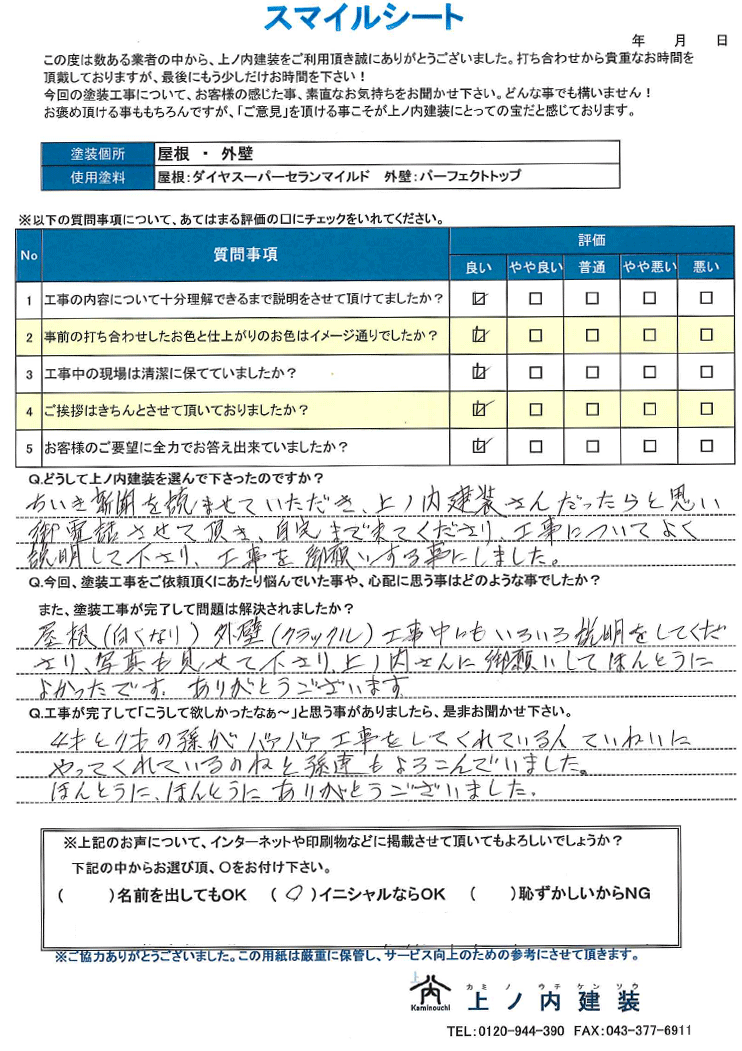 スマイルシート
年 月 日
この度は数ある業者の中から、上ノ内建装をご利用頂き誠にありがとうございました。打ち合わせから貴重なお時間を
頂戴しておりますが、最後にもう少しだけお時間を下さい！
今回の塗装工事について、お客様の感じた事、素直なお気持ちをお聞かせ下さい。どんな事でも構いません！
お褒め頂ける事ももちろんですが、「ご意見」を頂ける事こそが上ノ内建装にとっての宝だと感じております。
塗装個所 屋根 ・ 外壁
使用塗料 屋根：ダイヤスーパーセランマイルド 外壁：パーフェクトトップ
※以下の質問事項について、あてはまる評価の口にチェックをいれてください。
No 質問事項 評価
良い やや良い 普通 やや悪い 悪い
1 工事の内容について十分理解できるまで説明をさせて頂けてましたか？ ☑ □ □ □ □
2 事前の打ち合わせしたお色と仕上がりのお色はイメージ通りでしたか？ ☑ □ □ □ □
3 工事中の現場は清潔に保てていましたか？ ☑ □ □ □ □
4 ご挨拶はきちんとさせて頂いておりましたか？ ☑ □ □ □ □
5 お客様のご要望に全力でお答え出来ていましたか？ ☑ □ □ □ □
Q.どうして上ノ内建装を選んで下さったのですか？
ちいき新聞を読ませていただき、上ノ内建装さんだったらと思い
御電話させて頂き、自宅まで来てくださり、工事についてよく
説明して下さり、工事を御願いする事にしました。
Q.今回、塗装工事をご依頼頂くにあたり悩んでいた事や、心配に思う事はどのような事でしたか？
また、塗装工事が完了して問題は解決されましたか？
屋根（白くなり）外壁（クラックル）工事中にもいろいろ説明をしてくだ
さり、写真も見せて下さり、上ノ内さんに御願いしてほんとうに
よかったです。ありがとうございます
Q.工事が完了して「こうして欲しかったなぁ～」と思う事がありましたら、是非お聞かせ下さい。
4才と7才の孫がバァバァ工事をしてくれている人ていねいに
やってくれているのねと孫達もよろこんでいました。
ほんとうに、ほんとうにありがとうございました。
※上記のお声について、インターネットや印刷物などに掲載させて頂いてもよろしいでしょうか？
下記の中からお選び頂、〇をお付け下さい。
（ ）名前を出してもOK （〇）イニシャルならOK （ ）恥ずかしいからNG
※ご協力ありがとうございました。この用紙は厳重に保管し、サービス向上のための参考にさせて頂きます。
上ノ内 Kaminouchi
カミ ノ ウチ ケン ソウ
上ノ内建装
TEL:0120-944-390 FAX:043-377-6911